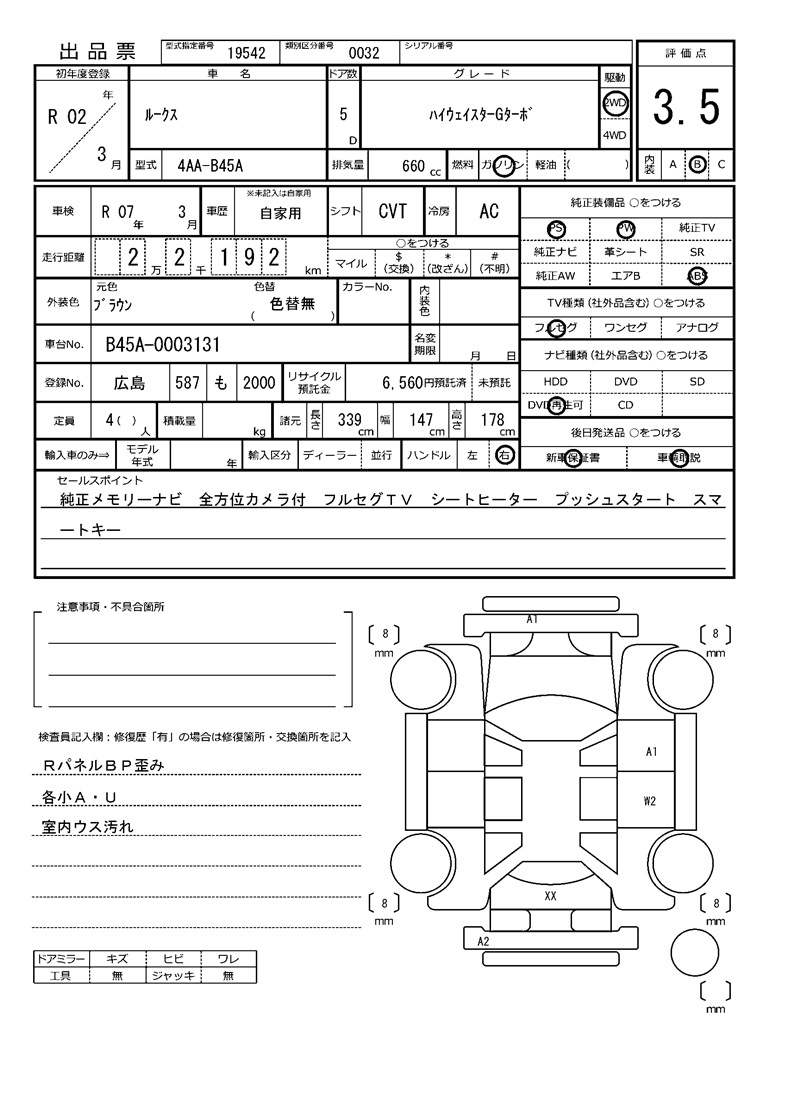 出品票 型式指定番号 19542 類別区分番号 0032 シリアル番号
評価点
初年度登録 車名 ドア数 グレード 駆動
R 02 年 3 月 ルークス 5 D ハイウェイスターGターボ 2WD 4WD
3.5
型式 4AA-B45A 排気量 660 cc 燃料 ガソリン 軽油 ( )
内装 A B C
車検 R 07 年 3 月 車歴 ※未記入は自家用 自家用 シフト CVT 冷房 AC
純正装備品 ○をつける
PS PW 純正TV
走行距離 2 万 2 千 1 9 2 km ○をつける マイル $ (交換) * (改ざん) # (不明)
純正ナビ 革シート SR
純正AW エアB ABS
外装色 元色 ブラウン 色替 ( 色替無 ) カラーNo. 内装色
TV種類 (社外品含む) ○をつける
フルセグ ワンセグ アナログ
車台No. B45A-0003131 名変期限 月 日
ナビ種類 (社外品含む) ○をつける
登録No. 広島 587 も 2000 リサイクル預託金 6,560円預託済 未預託
HDD DVD SD
DVD再生可 CD
定員 4 ( ) 人 積載量 kg 諸元 長さ 339 cm 幅 147 cm 高さ 178 cm
後日発送品 ○をつける
輸入車のみ⇒ モデル年式 年 輸入区分 ディーラー 並行 ハンドル 左 右
新車保証書 車輌取説
セールスポイント
純正メモリーナビ 全方位カメラ付 フルセグTV シートヒーター プッシュスタート スマ
ートキー
注意事項・不具合箇所
A1
8 mm
8 mm
検査員記入欄：修復歴「有」の場合は修復箇所・交換箇所を記入
RパネルBP歪み
A1
各小A・U
W2
室内ウス汚れ
XX
8 mm
8 mm
A2
ドアミラー キズ ヒビ ワレ
工具 無 ジャッキ 無
mm